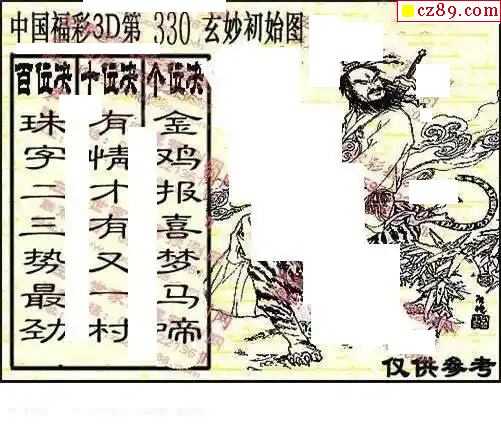 cz89.com
中国福彩3D第 330 玄妙初始图
百位决 十位决 个位决
珠字二三势最劲
有情才有又一村
金鸡报喜梦马啼
仅供参考